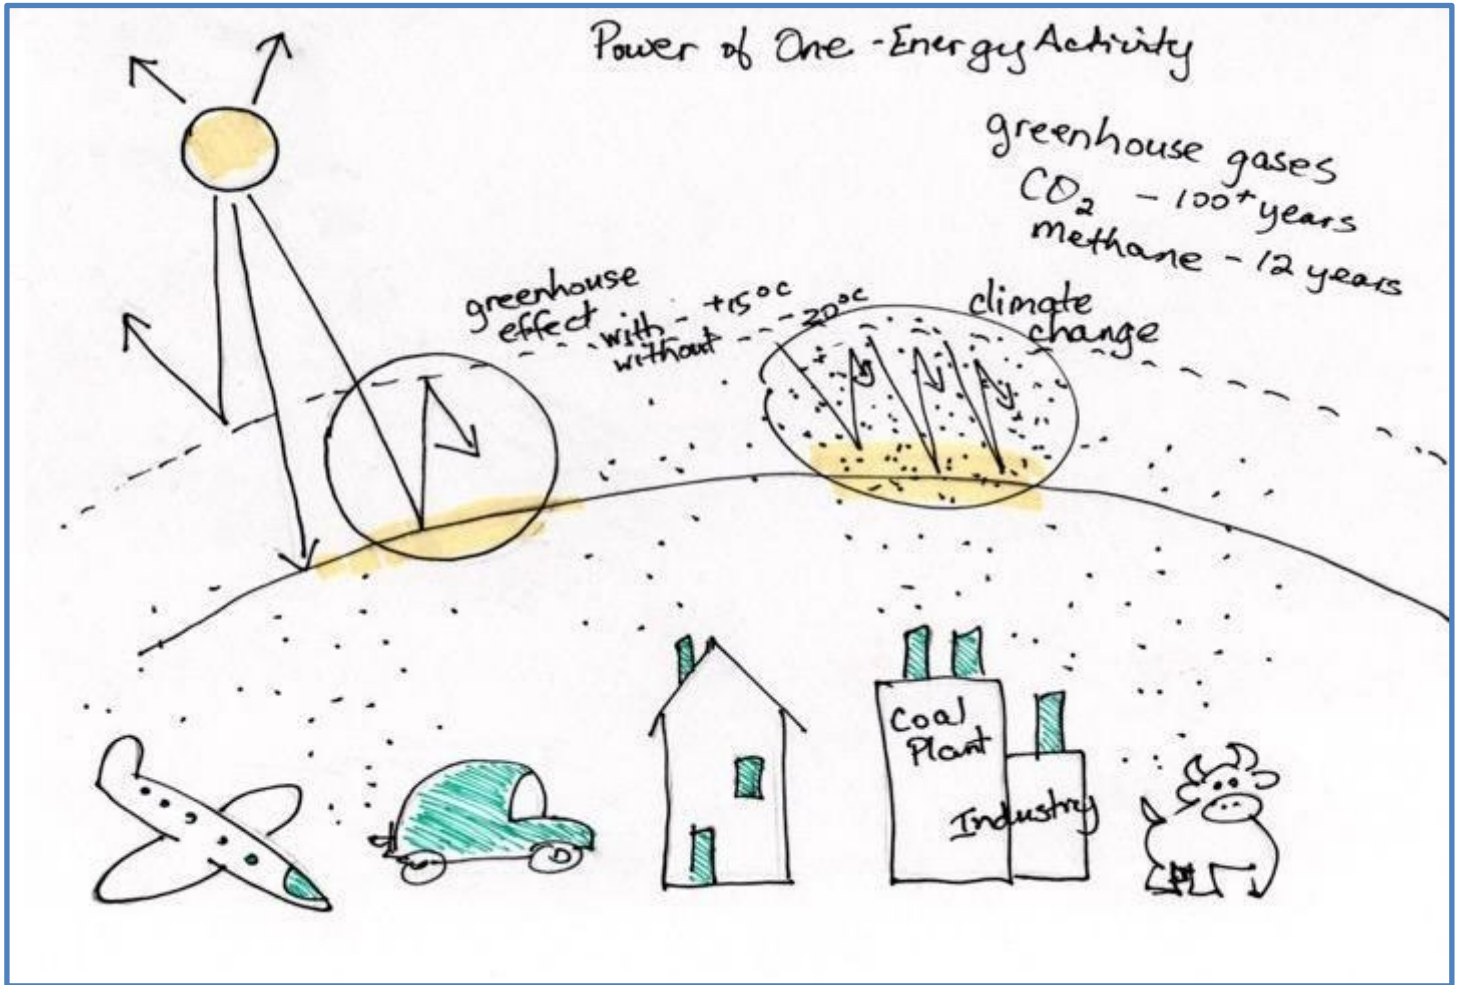 Power of One - Energy Activity
greenhouse gases
CO₂ - 100+ years
methane - 12 years
greenhouse
effect
with - +15°C
without - - - 20°C
climate
change
Coal
Plant
Industry